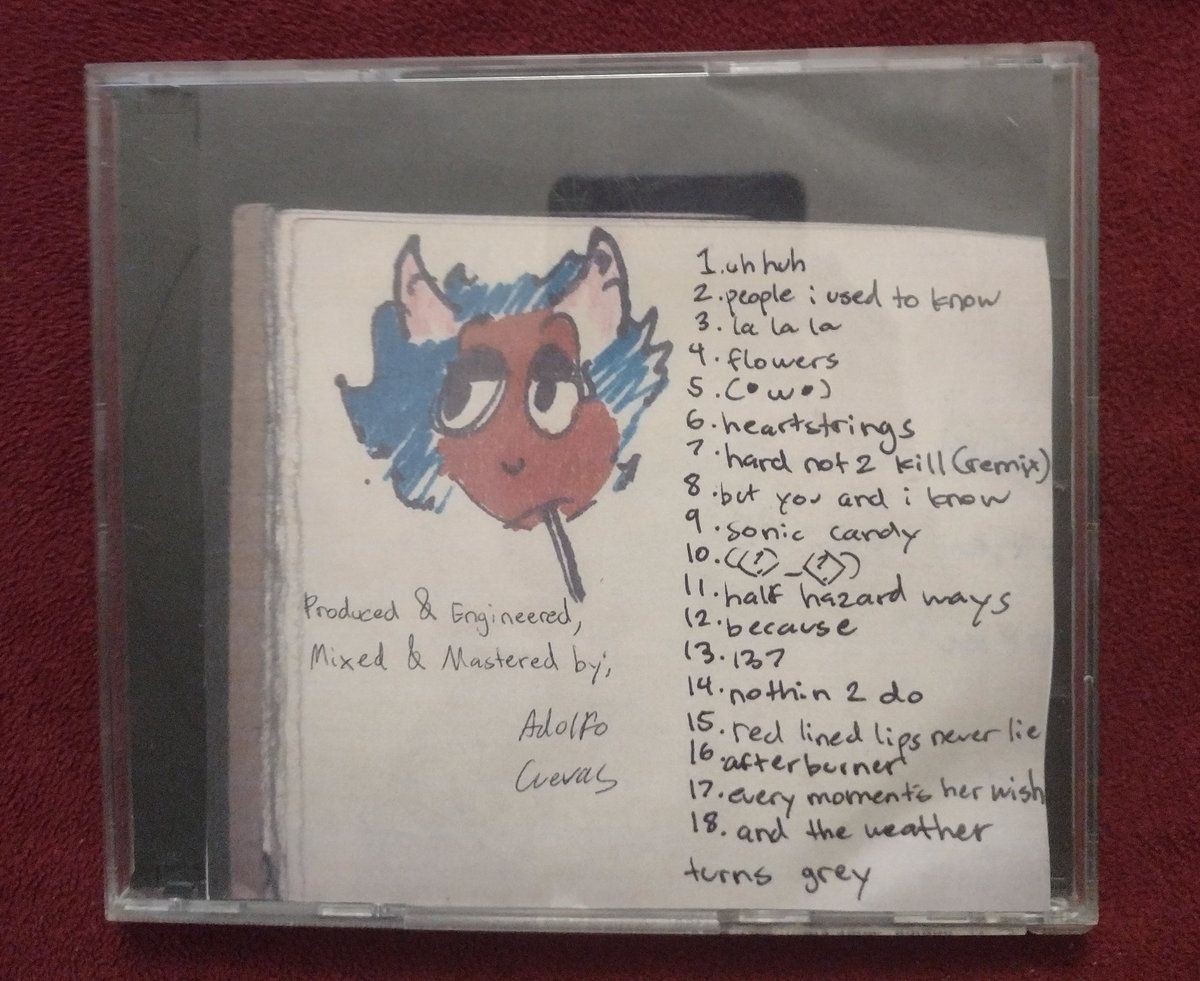 Produced & Engineered,
Mixed & Mastered by;
Adolfo
Cuevas
1. uh huh
2. people i used to know
3. la la la
4. flowers
5. (•w•)
6. heartstrings
7. hard not 2 kill (remix)
8. but you and i know
9. sonic candy
10. (<!>_<!>)
11. half hazard ways
12. because
13. 137
14. nothin 2 do
15. red lined lips never lie
16. afterburner
17. every moment's her wish
18. and the weather
turns grey